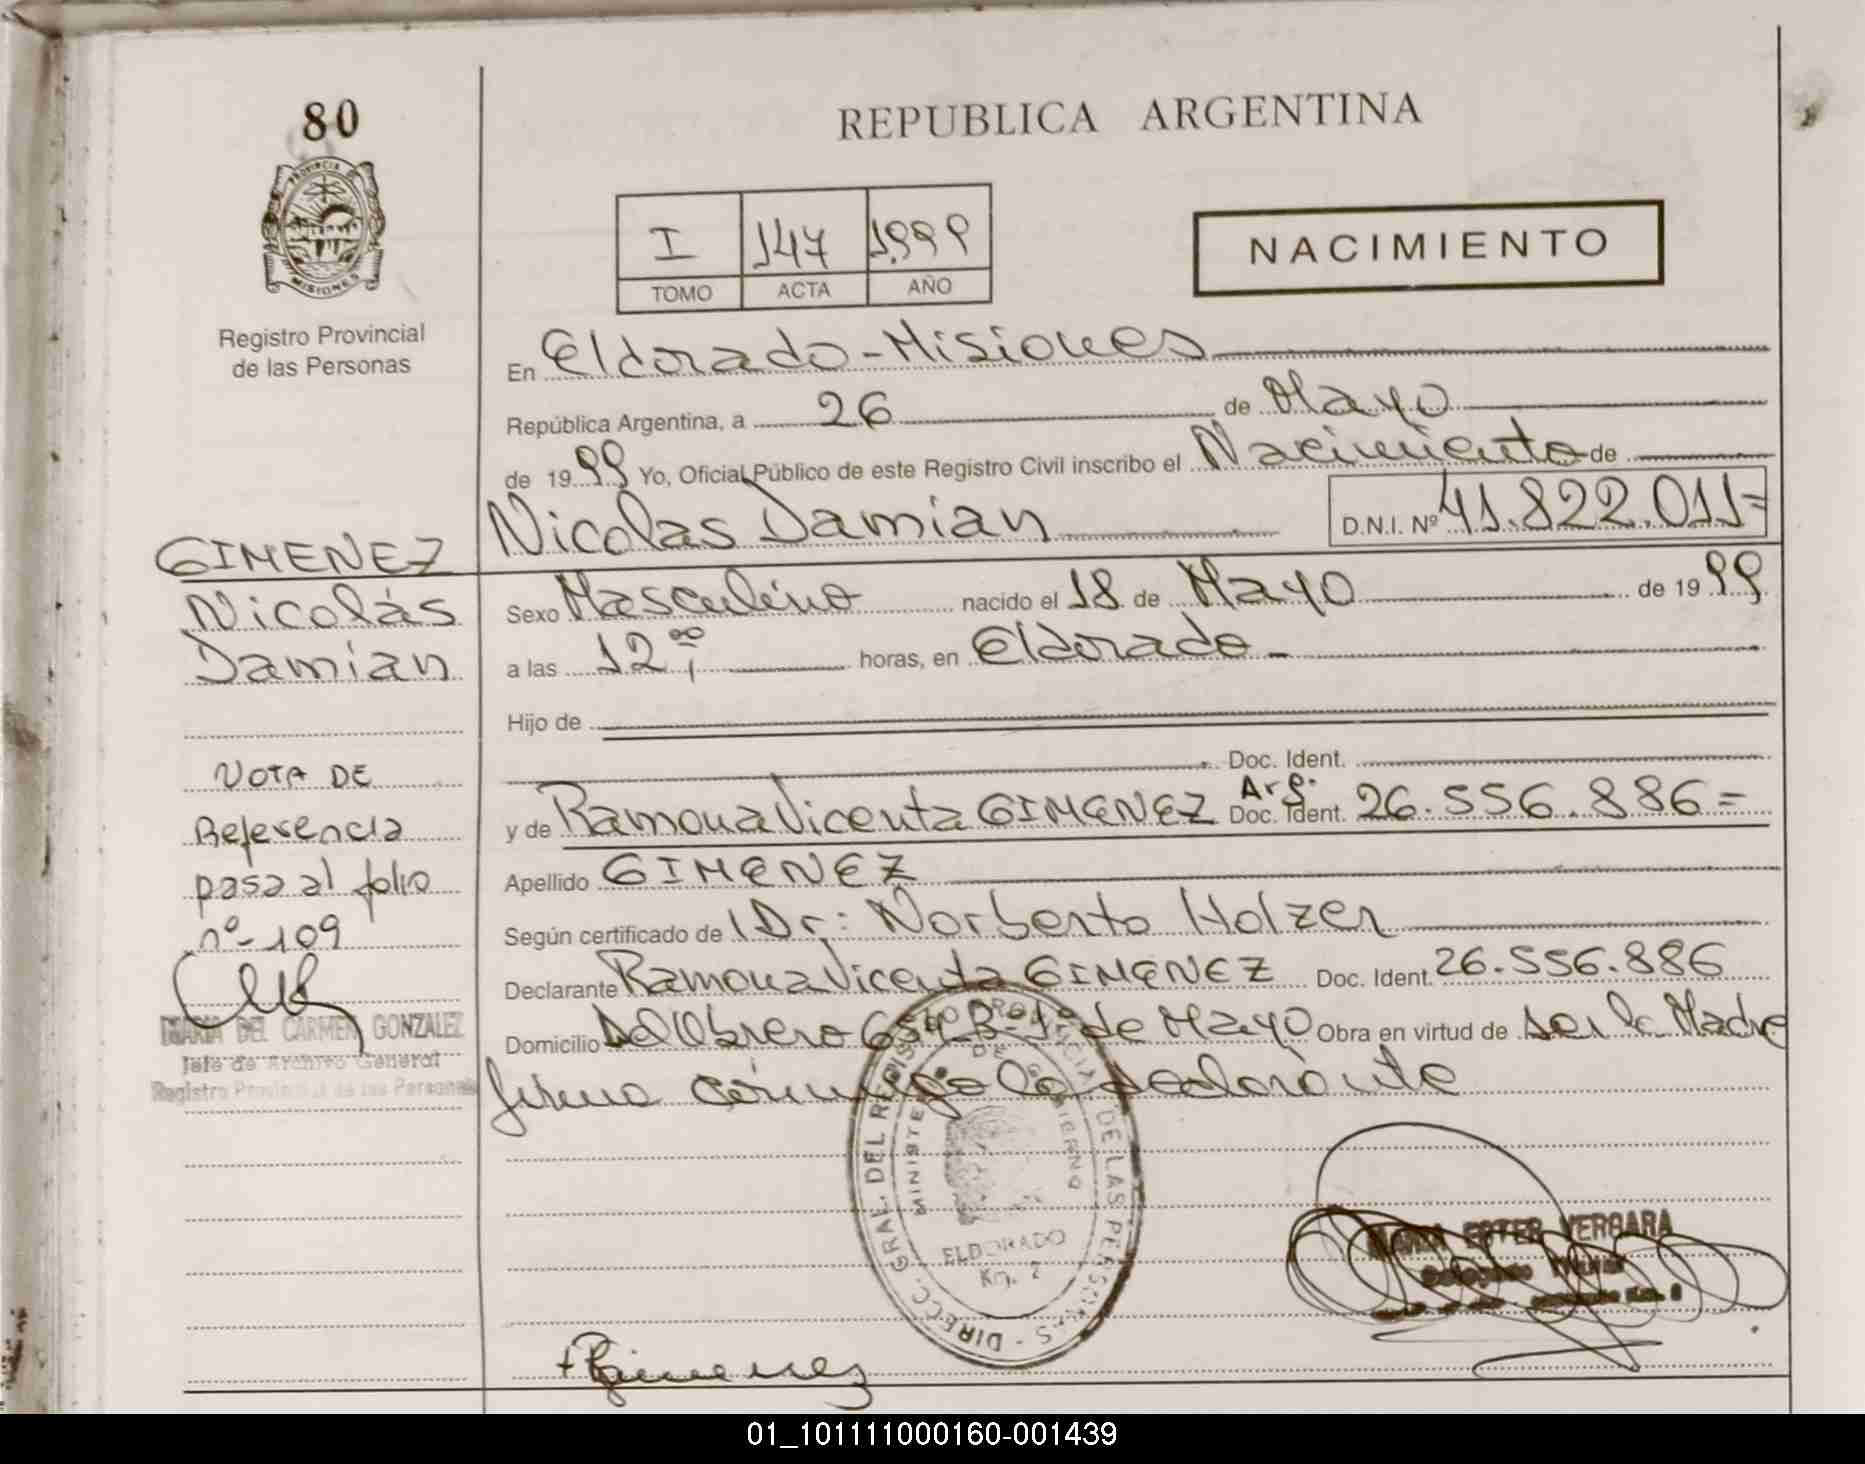 80
PROVINCIA DE
MISIONES
Registro Provincial
de las Personas
GIMENEZ
Nicolás
Damian
NOTA DE
Referencia
pasa al folio
nº-109
MARIA DEL CARMEN GONZALEZ
Jefe de Archivo General
Registro Provincial de las Personas
REPUBLICA ARGENTINA
I 147 1.999
TOMO ACTA AÑO
NACIMIENTO
En Eldorado-Misiones
República Argentina, a 26 de Mayo
de 1999 Yo, Oficial Público de este Registro Civil inscribo el Nacimiento de
Nicolas Damian D.N.I. Nº 41.822.011=
Sexo Masculino nacido el 18 de Mayo de 1999
a las 12,00 horas, en Eldorado-
Hijo de
Doc. Ident.
y de Ramona Vicenta GIMENEZ Arg. Doc. Ident. 26.556.886=
Apellido GIMENEZ
Según certificado de Dr: Norberto Holzer
Declarante Ramona Vicenta GIMENEZ Doc. Ident. 26.556.886
Domicilio Bº 1º de Mayo Obra en virtud de ser la Madre
firma conmigo la declarante
DIRECC. GRAL. DEL REGISTRO PROVINCIAL DE LAS PERSONAS
MINISTERIO DE GOBIERNO
ELDORADO
Km. 2
MARIA ESTER VERGARA
Delegada Titular
+ RGimenez
01_101111000160-001439